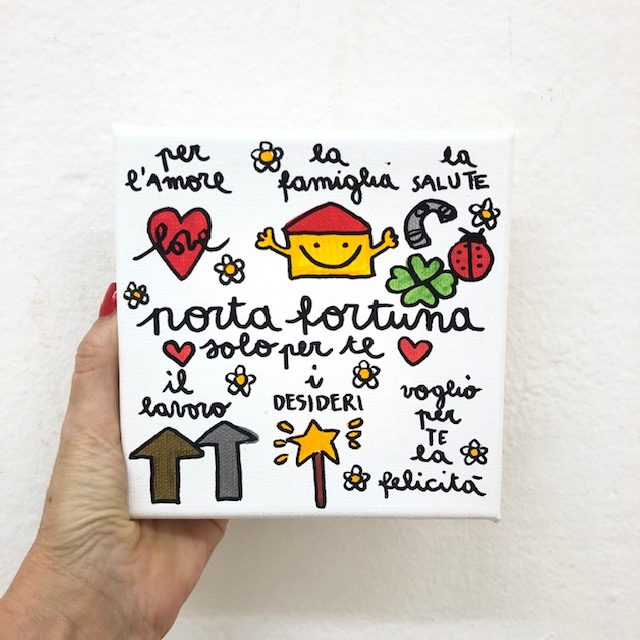 per
l'Amore
la
famiglia
la
SALUTE
love
porta fortuna
solo per te
il
lavoro
i
DESIDERI
voglio
per
TE
la
felicità